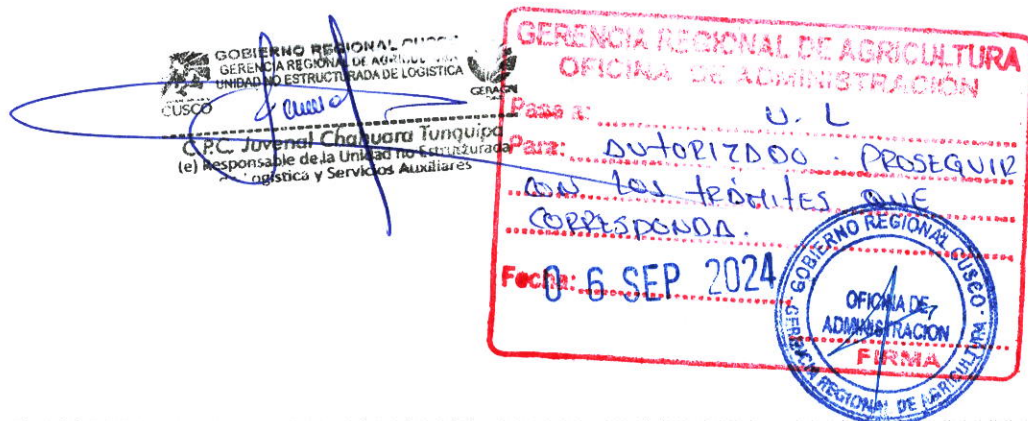 GOBIERNO REGIONAL CUSCO
GERENCIA REGIONAL DE AGRICULTURA
UNIDAD NO ESTRUCTURADA DE LOGISTICA
CUSCO
GERAGRI
C.P.C. Juvenal Chahuara Tunquipa
(e) Responsable de la Unidad no Estructurada
de Logística y Servicios Auxiliares
GERENCIA REGIONAL DE AGRICULTURA
OFICINA DE ADMINISTRACIÓN
Pase a: U. L
Para: AUTORIZADO. PROSEGUIR
CON LOS TRÁMITES QUE
CORRESPONDA.
Fecha: 0 6 SEP 2024
FIRMA
GOBIERNO REGIONAL CUSCO
OFICINA DE
ADMINISTRACION
GERENCIA REGIONAL DE AGRICULTURA